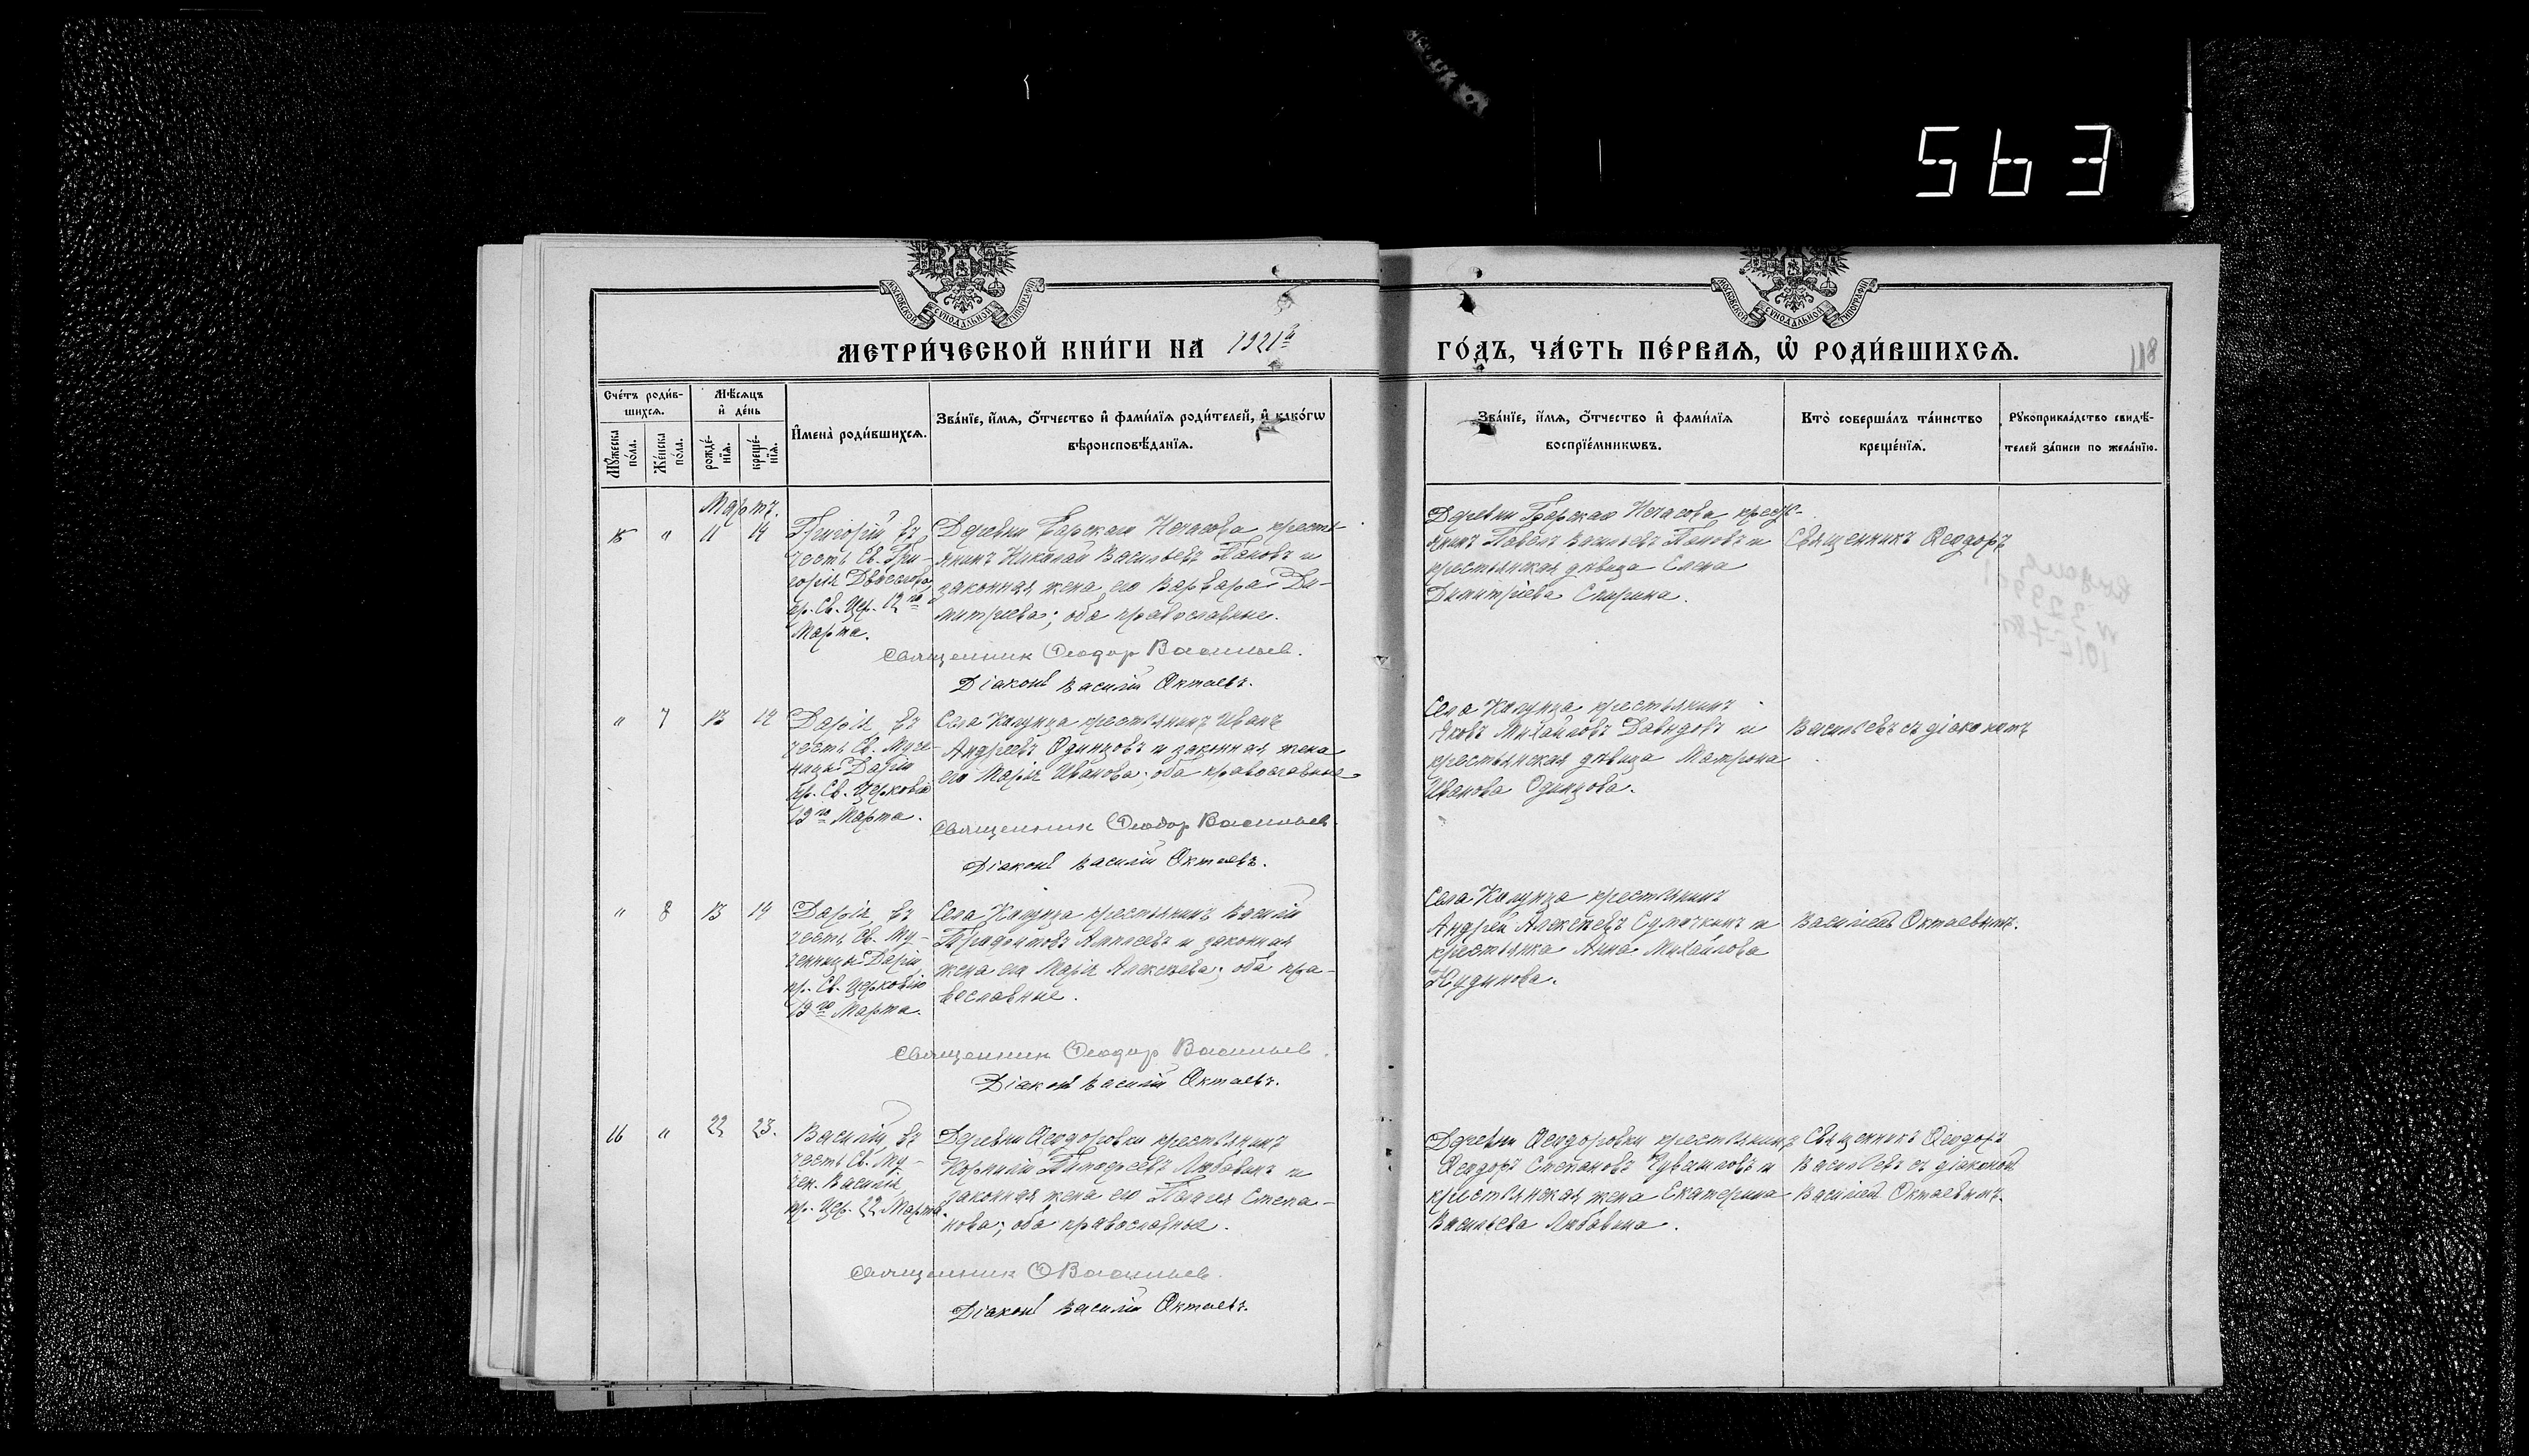 563
МЕТРИ́ЧЕСКОЙ КНИ́ГИ НА 1921й
ГО́ДЪ, ЧА́СТЬ ПЕ́РВАЯ, Ѡ҆ РОДИ́ВШИХСЯ.
118
Сче́тъ роди́в-
шихся.
Мꙋ́жеска
по́ла.
Же́нска
по́ла.
Мѣ́сяцъ
и҆ де́нь
рожде́-
нїя.
креще́-
нїя.
И҆мена̀ роди́вшихся.
Зва́нїе, и҆́мя, ѻ҆́тчество и҆ фами́лїя роди́телей, и҆ како́гѡ
вѣроисповѣ́данїя.
Зва́нїе, и҆́мя, ѻ҆́тчество и҆ фами́лїя
воспрїе́мникѡвъ.
Кто̀ соверша́лъ та́инство
креще́нїя.
Рꙋкоприкла́дство свидѣ́-
телей за́писи по жела́нїю.
Мартъ.
15 " 11 14
Григорій, въ
честь Св. Гри-
горія Двоеслова,
пр. Св. Цер. 12го
Марта.
Деревни крестья-
янинъ Николай Васильевъ Поповъ и
законная жена его Варвара Ди-
митриева; оба православные.
Священник Феодор Васильев.
Діаконъ Василій Октаевъ.
Деревни кресть-
янинъ Павелъ Васильевъ Поповъ и
крестьянская дѣвица Елена
Димитріева Спирина.
Священникъ Ѳеодоръ
" 7 13 14
Дарія, въ
честь Св. Муче-
ницы Даріи
пр. Св. Церковію
19го Марта.
Села крестьянинъ Иванъ
Андреевъ Одинцовъ и законная жена
его Марія Иванова; оба православные
Священник Феодор Васильев.
Діаконъ Василій Октаевъ.
Села крестьянинъ
Яковъ Михайловъ Давыдовъ и
крестьянская дѣвица Матрона
Иванова Одинцова.
Васильевъ съ діакономъ
" 8 13 14
Дарія, въ
честь Св. Му-
ченицы Даріи
пр. Св. Церковію
19го Марта.
Села крестьянинъ Василій
и законная
жена его Марія Алексѣева; оба пра-
вославные.
Священник Феодор Васильев.
Діаконъ Василій Октаевъ.
Села крестьянинъ
Андрей Алексѣевъ Сумочкинъ и
крестьянка Анна Михайлова
Кудинова.
Василіемъ Октаевымъ.
16 " 22 23.
Василій, въ
честь Св. Му-
чен. Василія
пр. Цер. 22 Марта.
Деревни Ѳеодоровки крестьянинъ
Любавинъ и
законная жена его Пелагея Степа-
нова; оба православные.
Священник Ф Васильев.
Діаконъ Василій Октаевъ.
Деревни Ѳеодоровки крестьянинъ
Ѳеодоръ Степановъ Чувашовъ и
крестьянская жена Екатерина
Васильева Любавина.
Священникъ Ѳеодоръ
Васильевъ съ діакономъ
Василіемъ Октаевымъ.